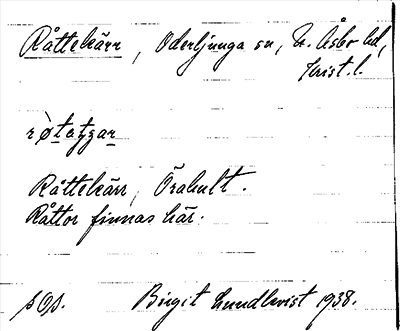 Råttekärr, Oderljunga sn, N. Åsbo hd,
Krist. l.
Råttekärr, Örahult.
Råttor finnas här.
s. Og. Birgit Lundkvist 1938.